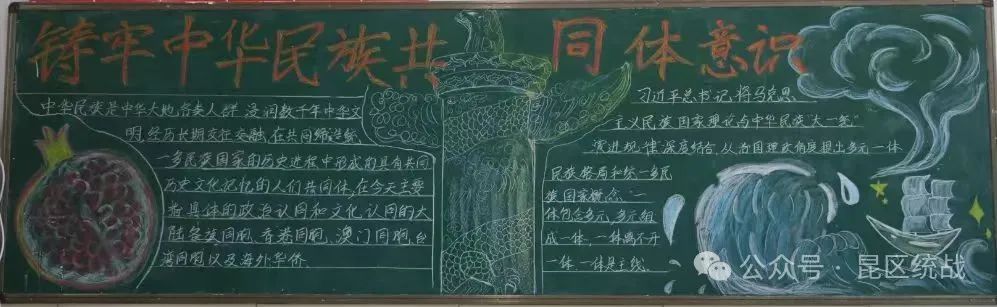 铸牢中华民族共同体意识
中华民族是中华大地各类人群浸润数千年中华文
明,经历长期交往交融,在共同缔造统
一多民族国家的历史进程中形成的具有共同
历史文化记忆的人们共同体,在今天主要
指具体的政治认同和文化认同的大
陆各族同胞,香港同胞、澳门同胞,台
湾同胞以及海外华侨.
习近平总书记,将马克思
主义民族国家理论与中华民族"大一统"
演进规律深度结合,从治国理政角度提出多元一体
民族格局和统一多民
族国家概念.
体包含多元,多元组
成一体,一体离不开
一体,一体是主线、
公众号·昆区统战